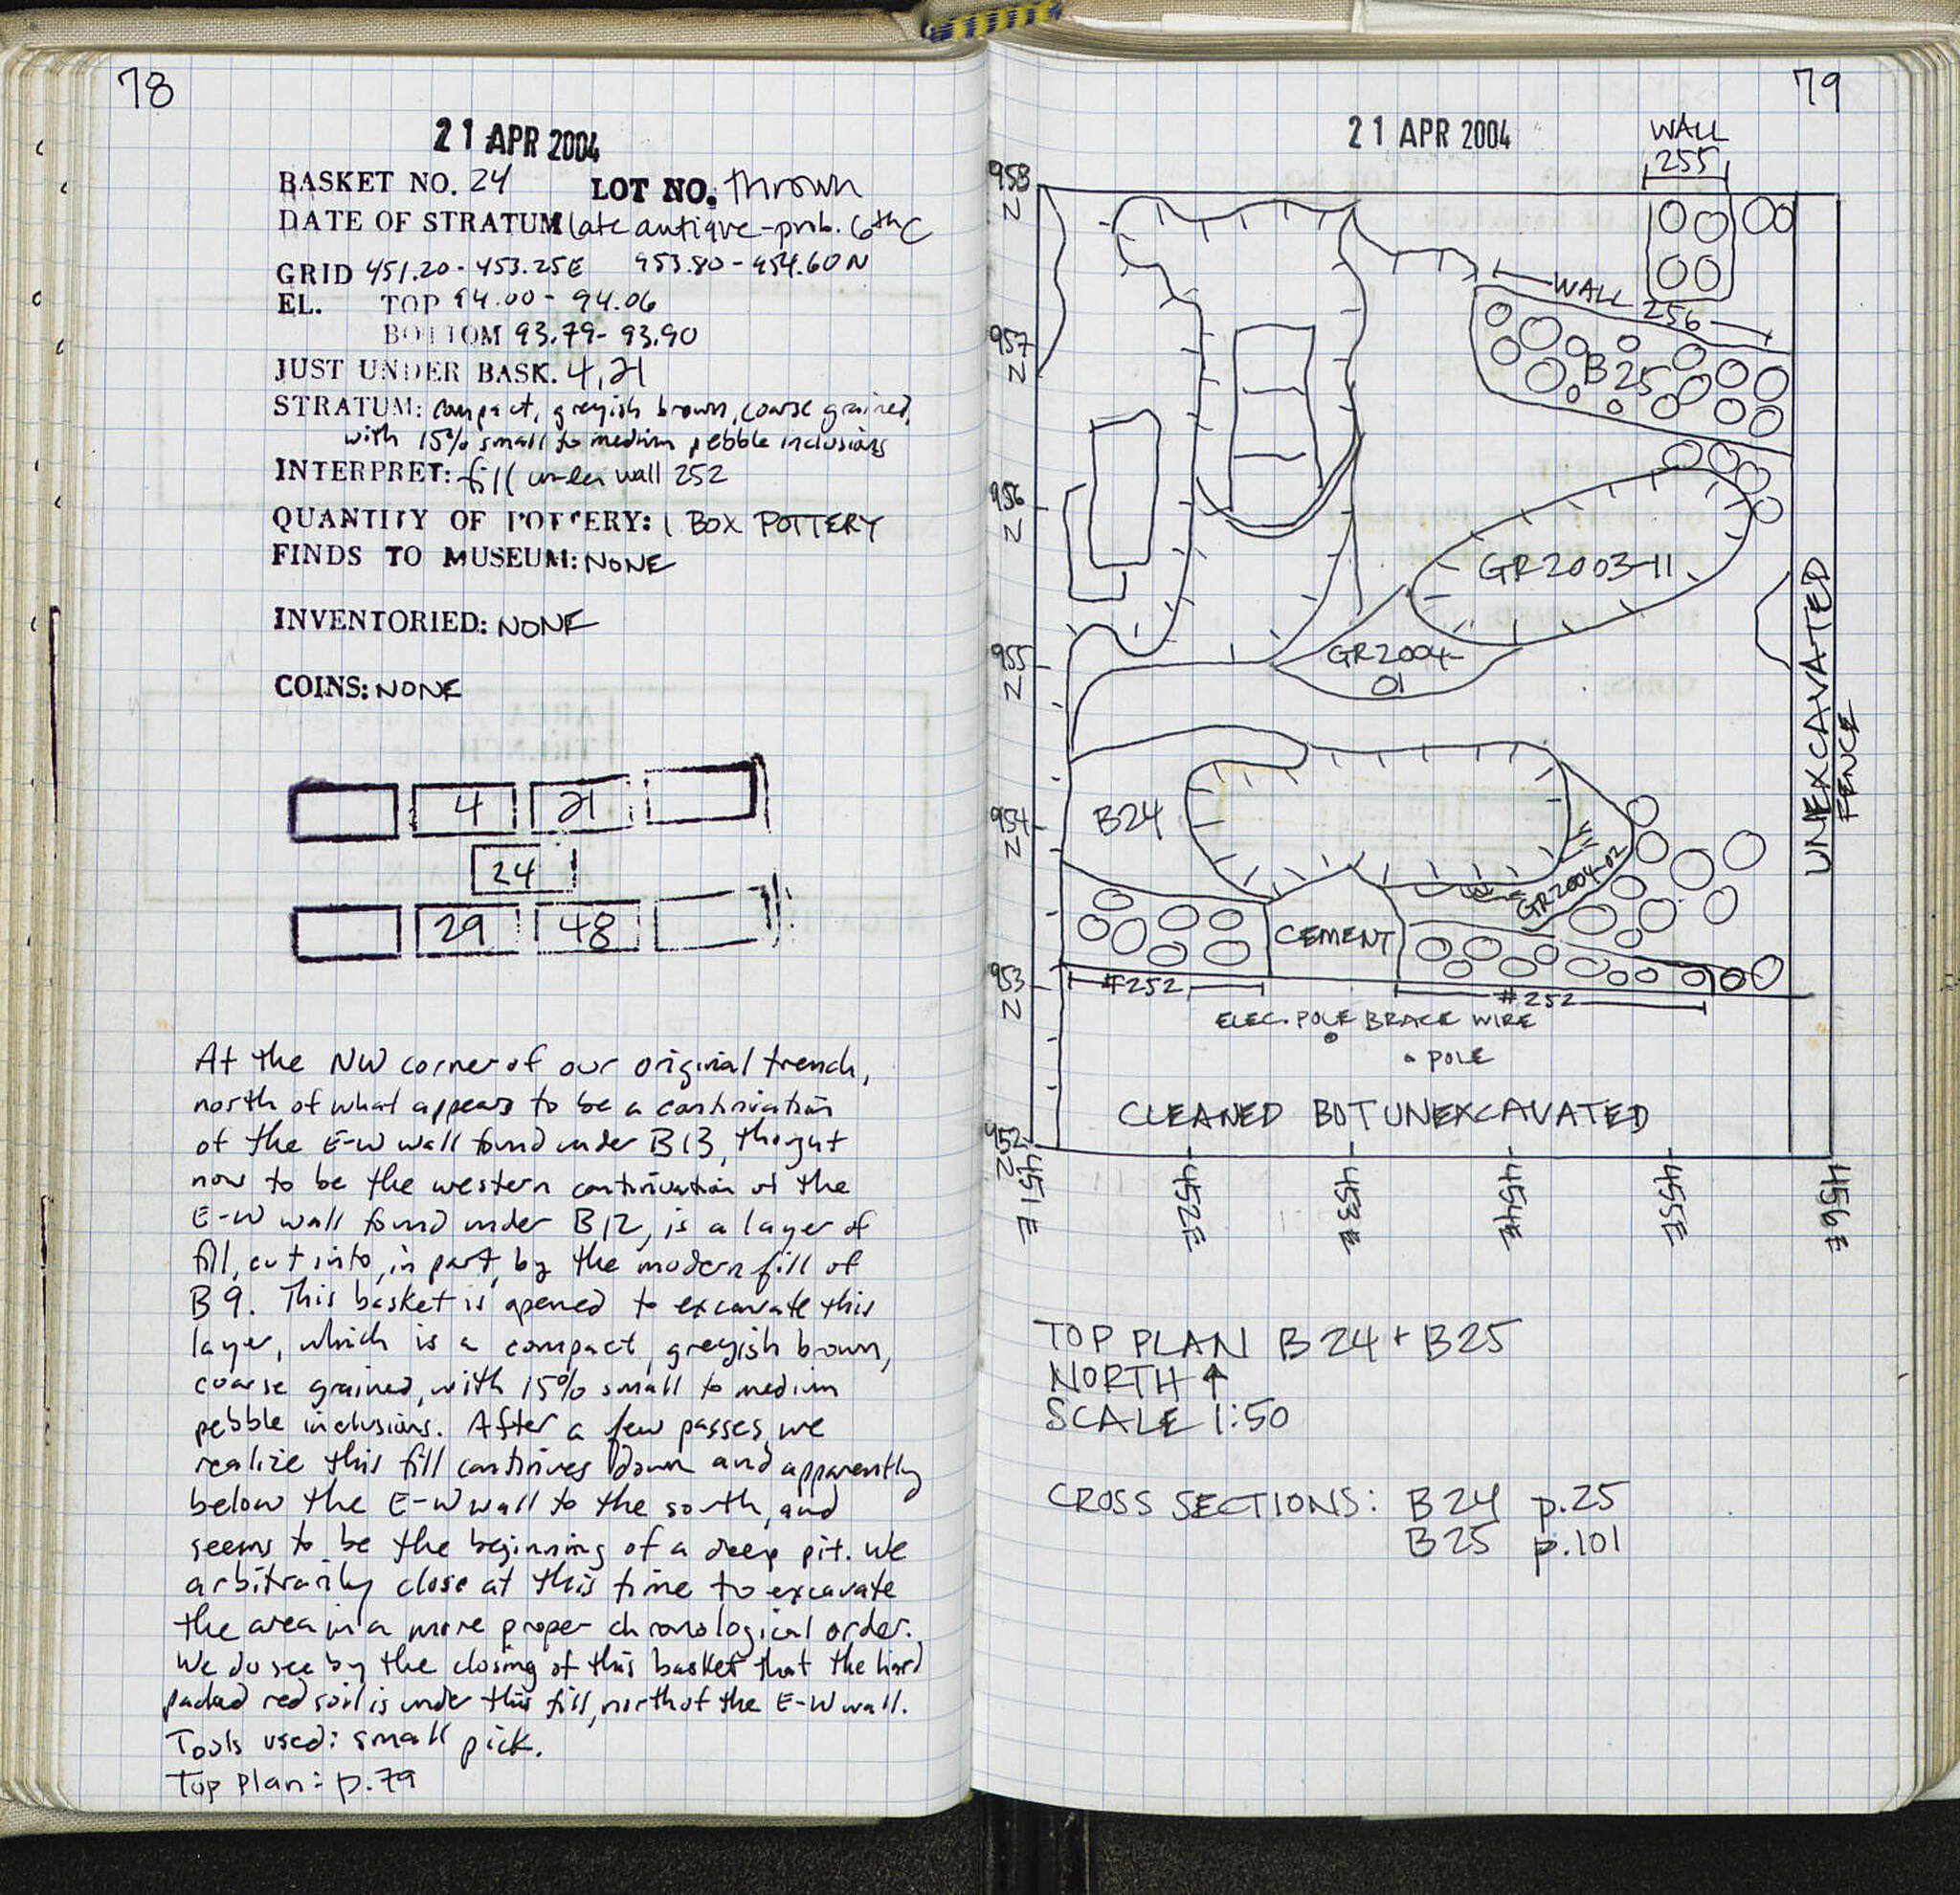 78
21 APR 2004
BASKET NO. 24 LOT NO. thrown
DATE OF STRATUM late antique - prob. 6th C
GRID 451.20 - 453.25E 953.80 - 954.60 N
EL. TOP 94.00 - 94.06
BOTTOM 93.79 - 93.90
JUST UNDER BASK. 4, 21
STRATUM: compact, greyish brown, coarse grained,
with 15% small to medium pebble inclusions
INTERPRET: fill under wall 252
QUANTITY OF POTTERY: 1 BOX POTTERY
FINDS TO MUSEUM: NONE
INVENTORIED: NONE
COINS: NONE
4 21
24
29 48
At the NW corner of our original trench,
north of what appears to be a continuation
of the E-W wall found under B13, thought
now to be the western continuation of the
E-W wall found under B12, is a layer of
fill, cut into, in part, by the modern fill of
B9. This basket is opened to excavate this
layer, which is a compact, greyish brown,
coarse grained, with 15% small to medium
pebble inclusions. After a few passes, we
realize this fill continues down and apparently
below the E-W wall to the south, and
seems to be the beginning of a deep pit. We
arbitrarily close at this time to excavate
the area in a more proper chronological order.
We do see by the closing of this basket that the hard
packed red soil is under this fill, north of the E-W wall.
Tools used: small pick.
Top Plan: p.79
79
21 APR 2004
WALL
255
958 N
WALL 256
957 N
B25
956 N
GR2003-11
955 N
GR2004-
01
UNEXCAVATED
FENCE
954 N
B24
GR2004-02
CEMENT
953 N
#252
#252
ELEC. POLE BRACE WIRE
POLE
CLEANED BUT UNEXCAVATED
952 N
451E 452E 453E 454E 455E 456E
TOP PLAN B24 + B25
NORTH ↑
SCALE 1:50
CROSS SECTIONS: B24 p.25
B25 p.101